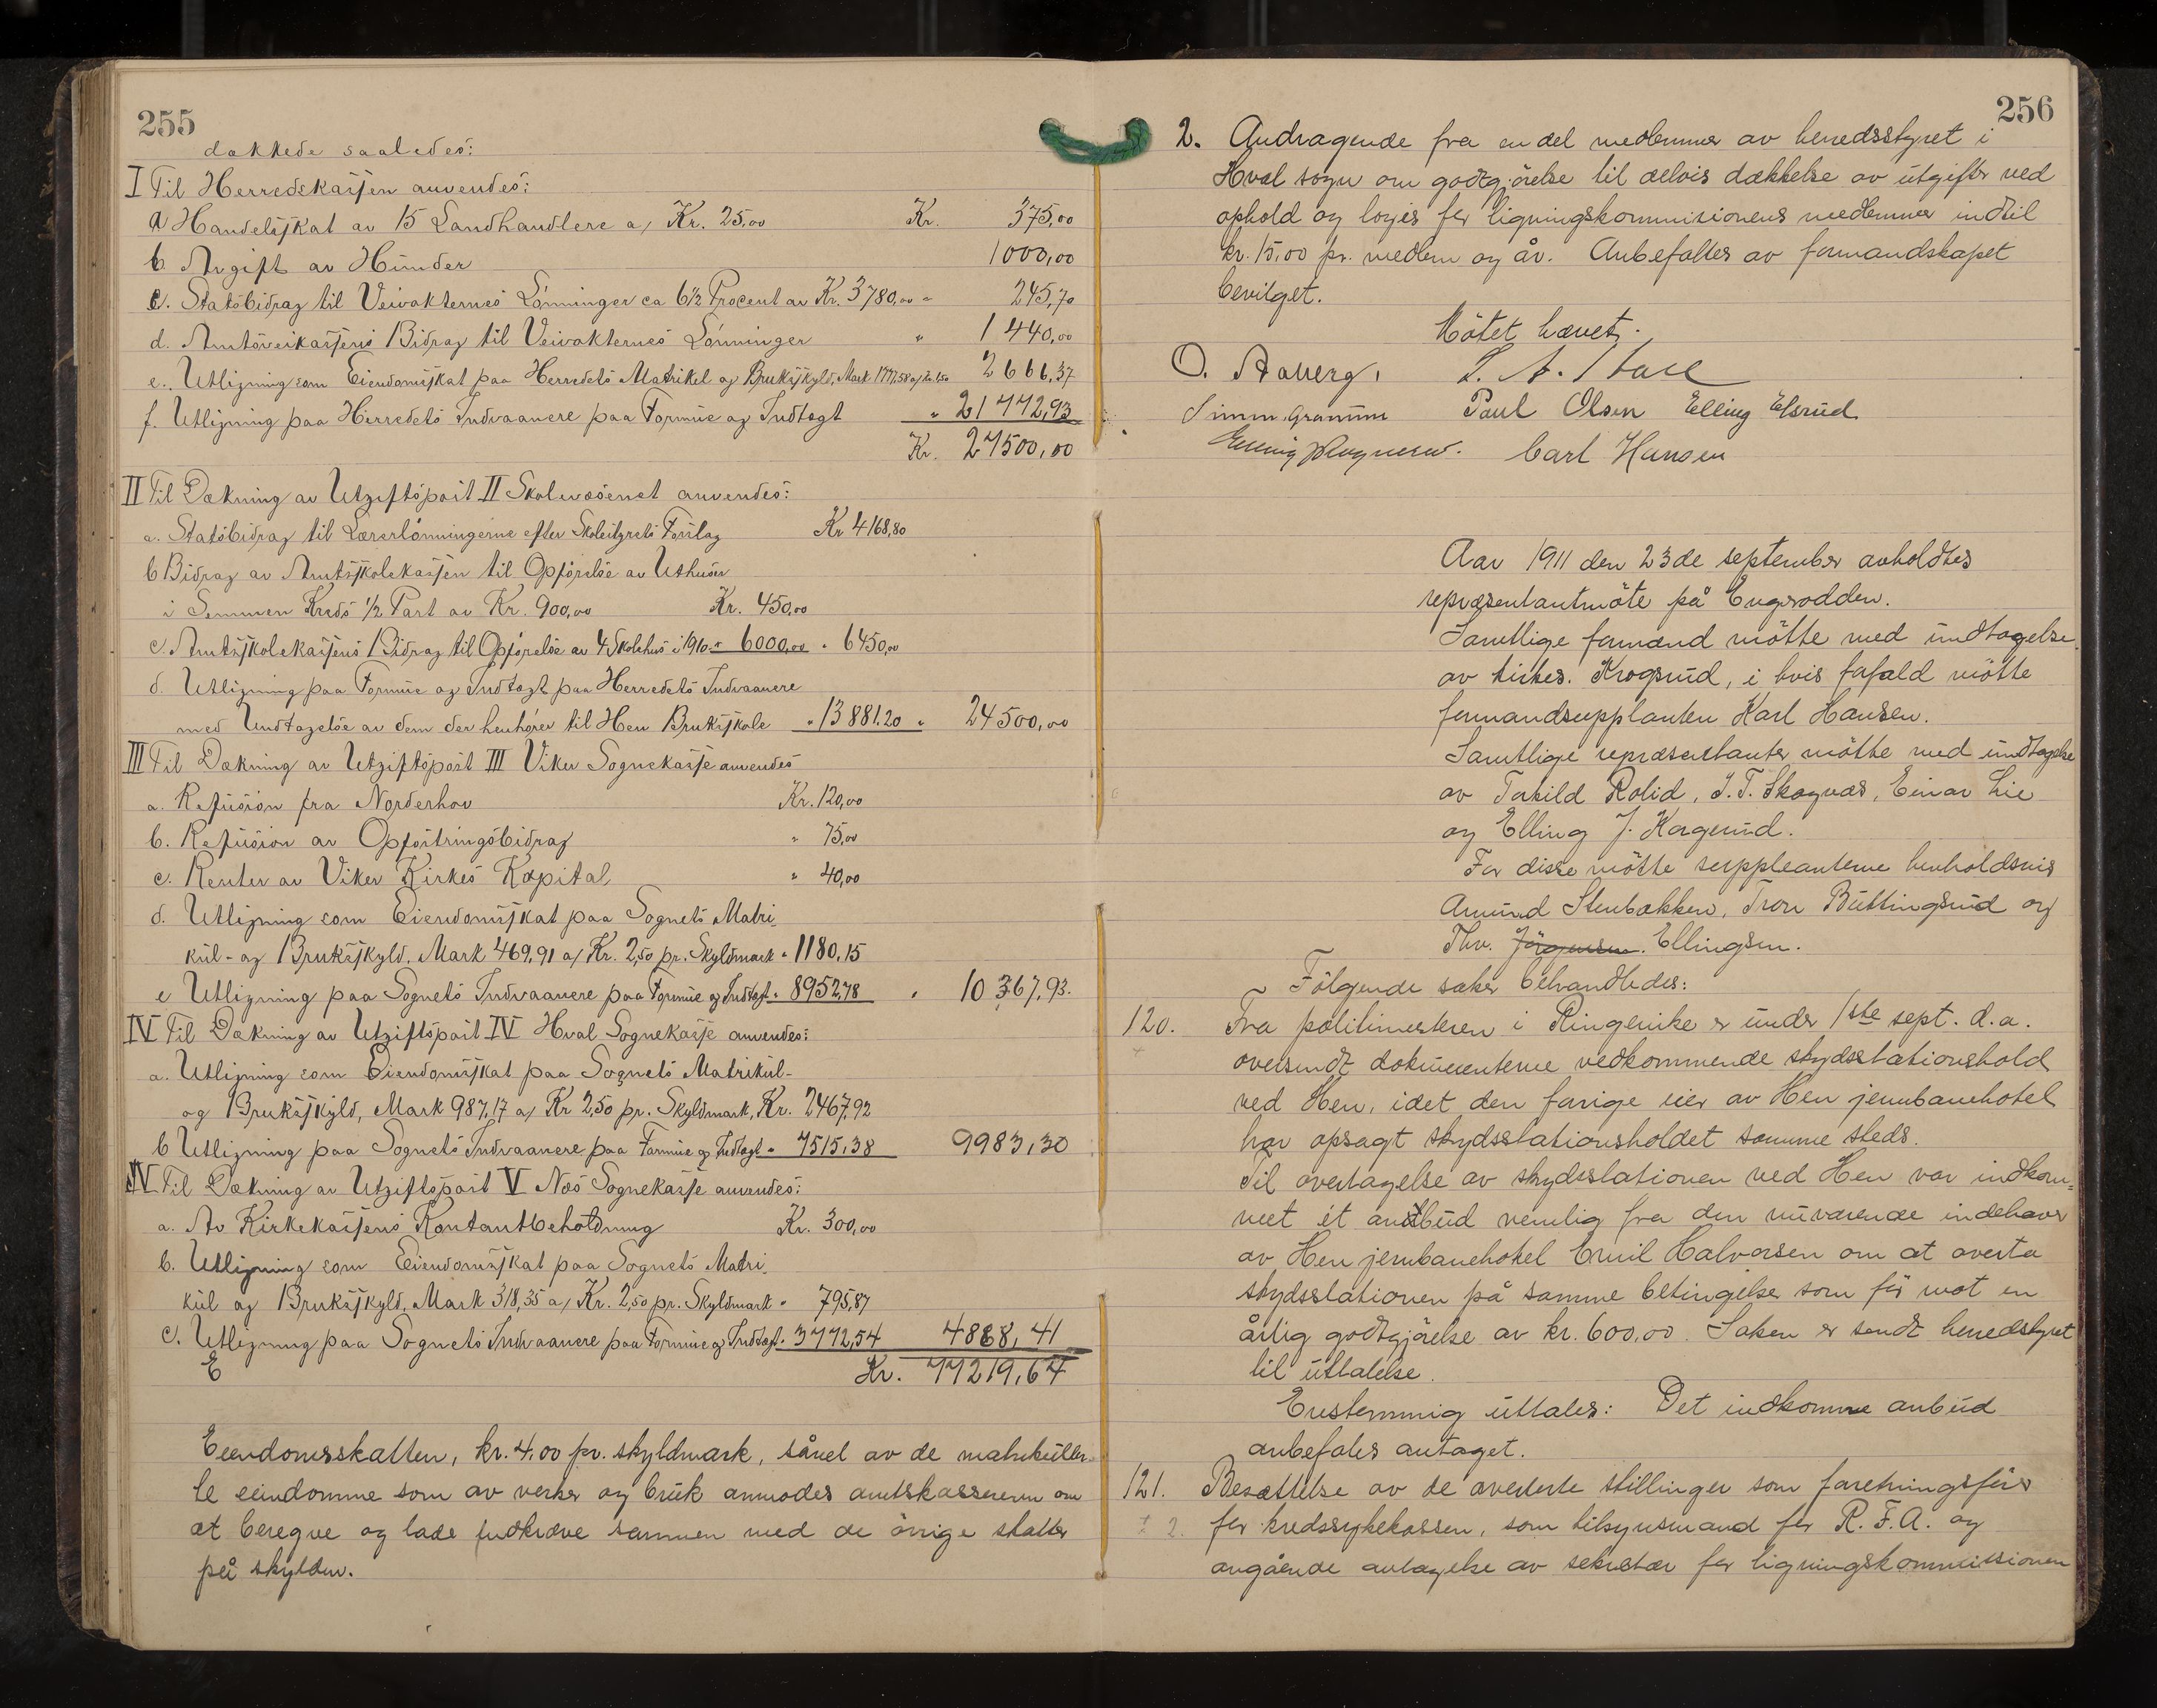 255
dækkede saaledes:
I Til Herredskassen anvendes:
a Handelsskat av 15 Landhandlere a/ Kr. 25,00 Kr. 375,00
b. Avgift av Hunder 1000,00
c. Statsbidrag til Veivakternes Lønninger ca 6½ Procent av Kr. 3780,00 " 245,70
d. Amtsveikassens Bidrag til Veivakternes Lønninger " 1440,00
e. Utligning som Eiendomsskat paa Herredets Matrikel og Bruksskyld, Mark 1777,58 a/ Kr. 1,50 2666,37
f. Utligning paa Herredets Indvaanere paa Formue og Indtægt " 21772,93
Kr. 27500,00
II Til Dækning av Utgiftspost II Skolevæsenet anvendes:
a. Statsbidrag til Lærerlønningerne efter Skolestyrets Forslag Kr 4168,80
b Bidrag av Amtsskolekassen til Opførelse av Uthuser
i Semmen Kreds ½ Part av Kr. 900,00 Kr. 450,00
c Amtsskolekassens Bidrag til Opførelse av 4 Skolehus i 1910 " 6000,00 " 6450,00
d. Utligning paa Formue og Indtægt paa Herredets Indvaanere
med Undtagelse av dem der henhører til Hen Bruksskole " 13881.20 " 24500,00
III Til Dækning av Utgiftspost III Viker Sognekasse anvendes
a. Refusion fra Norderhov Kr. 120,00
b. Refusion av Opfostringsbidrag " 75,00
c. Renter av Viker Kirkes Kapital " 40,00
d. Utligning som Eiendomsskat paa Sognets Matri-
kul- og Bruksskyld, Mark 469,91 a/ Kr. 2,50 pr. Skyldmark " 1180,15
e Utligning paa Sognets Indvaanere paa Formue og Indtægt " 8952,78 " 10367,93.
IV Til Dækning av Utgiftspost IV Hval Sognekasse anvendes:
a. Utligning som Eiendomsskat paa Sognets Matrikul-
og Bruksskyld, Mark 987,17 a/ Kr 2,50 pr. Skyldmark, Kr. 2467,92
b Utligning paa Sognets Indvaanere paa Formue og Indtægt " 7515,38 9983,30
IV Til Dækning av Utgiftspost V Næs Sognekasse anvendes:
a. Av Kirkekassens Kontantbeholdning Kr. 300,00
b. Utligning som Eiendomsskat paa Sognets Matri-
kul og Bruksskyld, Mark 318,35 a/ Kr. 2,50 pr. Skyldmark " 795,87
c. Utligning paa Sognets Indvaanere paa Formue og Indtægt " 3772,54 4868,41
E Kr. 77219,64
Eiendomsskatten, kr. 4,00 pr. skyldmark, såvel av de matrikuller-
te eiendomme som av verker og bruk anmodes amtskassereren om
at beregne og lade indkræve sammen med de øvrige skatter
på skylden.
256
2. Andragende fra en del medlemmer av herredsstyret i
Hval sogn om godtgjörelse til delvis dækkelse av utgifter ved
ophold og logis for ligningskommisionens medlemmer indtil
kr. 15,00 pr. medlem og år. Anbefaltes av formandskapet
bevilget.
Mötet hævet.
O. Aaberg,
Simen Granum Paul Olsen Elling Elsrud
Carl Hansen
Aar 1911 den 23de september avholdtes
repræsentantmöte på Engerodden.
Samtlige formænd mötte med undtagelse
av kirkes. Krogsrud, i hvis forfald mötte
formandsupplanten Karl Hansen.
Samtlige repræsentanter mötte med undtagelse
av Torkild Rolid, J. T. Skagnæs, Einar Lie
og Elling J. Hagerud.
For disse mötte suppleanterne henholdsvis
Amund Stenbækken, Tron Buttingsrud og
Thv. Jörgensen. Ellingsen.
Fölgende saker behandledes:
120. Fra politimesteren i Ringerike er under 1ste sept. d.a.
oversendt dokumenterne vedkommende skydsstationshold
ved Hen, idet den forrige eier av Hen jernbanehotel
har opsagt skydsstationsholdet samme steds.
Til overtagelse av skydsstationen ved Hen var indkom=
met ét anbud nemlig fra den nuværende indehaver
av Hen jernbanehotel Emil Halvorsen om at overta
skydsstationen på samme betingelser som för mot en
årlig godtgjörelse av kr. 600,00. Saken er sendt herredstyret
til uttalelse.
Enstemmig uttales: Det indkomne anbud
anbefales antaget.
121. Besættelse av de averterte stillinger som forretningsförer
for kredssykekassen, som tilsynsmand for R. F. A. og
angående antagelse av sekretær for ligningskommissionen